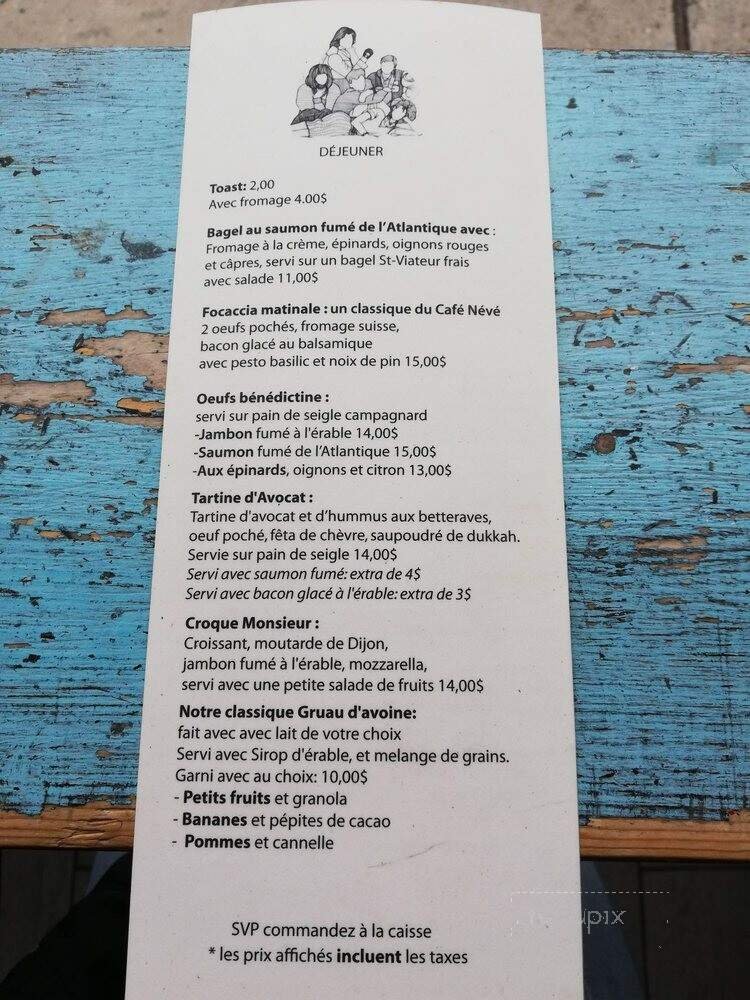 DÉJEUNER
Toast: 2,00
Avec fromage 4.00$
Bagel au saumon fumé de l'Atlantique avec :
Fromage à la crème, épinards, oignons rouges
et câpres, servi sur un bagel St-Viateur frais
avec salade 11,00$
Focaccia matinale : un classique du Café Névé
2 oeufs pochés, fromage suisse,
bacon glacé au balsamique
avec pesto basilic et noix de pin 15,00$
Oeufs bénédictine :
servi sur pain de seigle campagnard
-Jambon fumé à l'érable 14,00$
-Saumon fumé de l'Atlantique 15,00$
-Aux épinards, oignons et citron 13,00$
Tartine d'Avocat :
Tartine d'avocat et d'hummus aux betteraves,
oeuf poché, fêta de chèvre, saupoudré de dukkah.
Servie sur pain de seigle 14,00$
Servi avec saumon fumé: extra de 4$
Servi avec bacon glacé à l'érable: extra de 3$
Croque Monsieur :
Croissant, moutarde de Dijon,
jambon fumé à l'érable, mozzarella,
servi avec une petite salade de fruits 14,00$
Notre classique Gruau d'avoine:
fait avec avec lait de votre choix
Servi avec Sirop d'érable, et melange de grains.
Garni avec au choix: 10,00$
- Petits fruits et granola
- Bananes et pépites de cacao
- Pommes et cannelle
SVP commandez à la caisse
* les prix affichés incluent les taxes